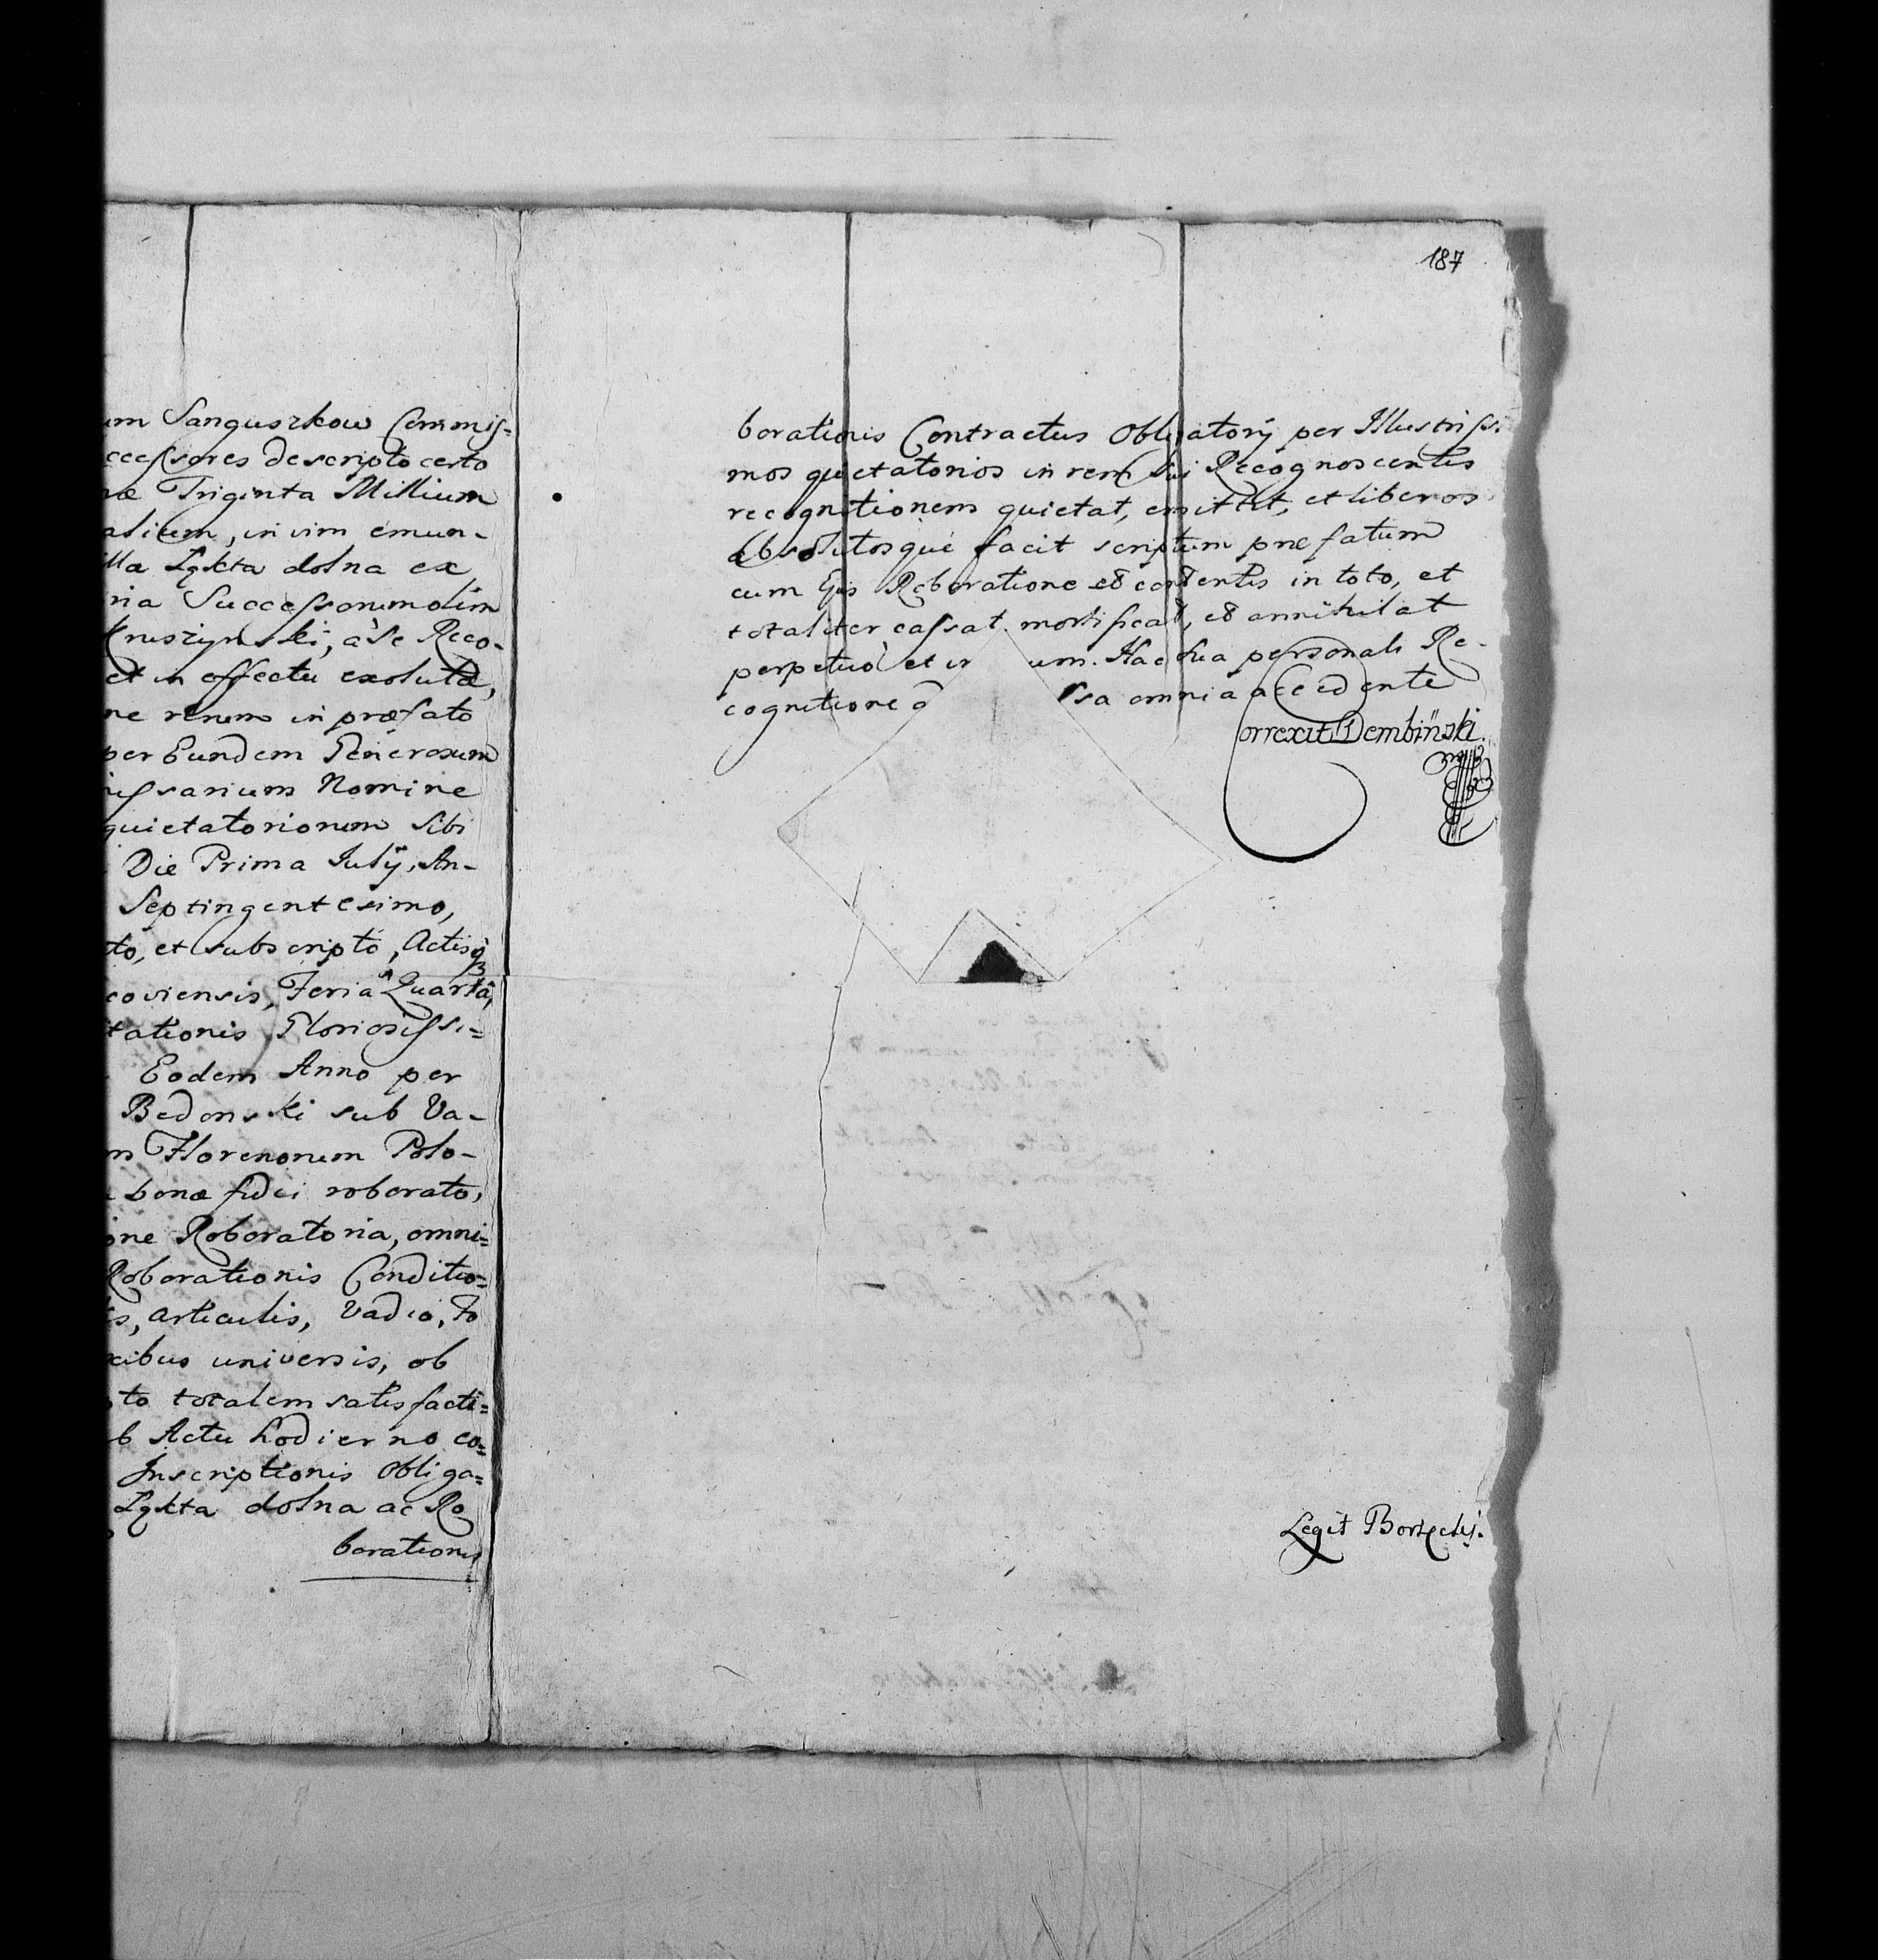 um Sanguszkow Commis=
ccessores descripto certo
næ Triginta Millium
alium, in vim emun-
illa Łąkta dolna ex
ria Successorum olim
Kruszyński, à Se Reco-
et in effectu exolutæ,
ne rerum in præfato
per Eundem Generosum
issarium Nomine
quietatorionum Sibi
Die Prima Julÿ, An-
Septingentesimo,
to, et subscripto, Actisq3
coviensis, Feriâ Quartâ,
tationis Gloriosissi=
Eodem Anno per
Bedonski sub Va-
m Florenorum Polo-
bonæ fidei roborato,
one Roboratoria, omni=
Roborationis Conditio=
is, articulis, Vadio, To
xibus universis, ob
to totalem satisfacti=
b Actu hodierno co=
Inscriptionis Obliga=
Łąkta dolna ac Ro
borationis
187
borationis Contractus Obligatorÿ per Illustrissi
mos quietatorios in rem Sui Recognoscentis
recognitionem quietat, emittit, et liberos
absolutosque facit scriptum præfatum
cum Ejus Roboratione et contentis in toto, et
totaliter cassat mortificat, et annihilat
perpetuò et in um. Hac sua personali Re-
cognitione ssa omnia accedente
Correxit Dembiński.
Legit